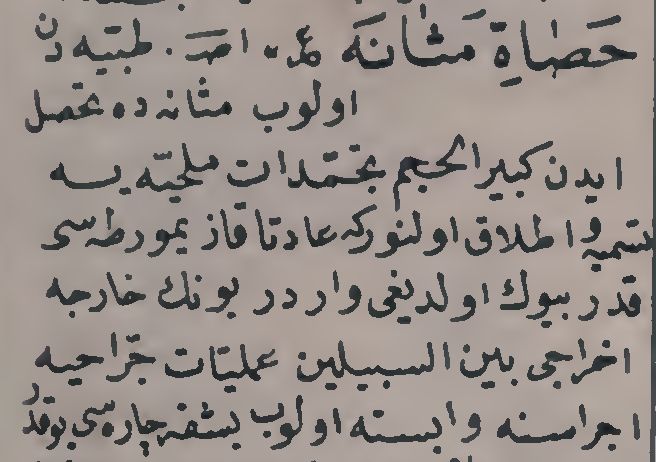 حَصَاةِ مَثَانَه ع‍. اصـ. طبيّه دن
اولوب مثانه ده تحصل
ايدن كبير الحجم تجمّدات ملحيّه يه
تسميه و اطلاق اولنوركه عادتا قاز يمورطه سى
قدر بيوك اولديغى واردر بونك خارجه
اخراجى بين السبيلين عمليّات جرّاحيه
اجراسنه وابسته اولوب بشقه چاره سى يوقدر